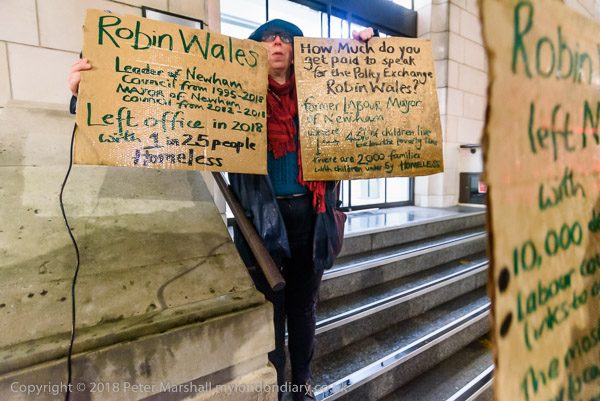 Robin Wales
Leader of Newham
Council from 1995-2018
MAYOR of Newham
council from 2002-2018
Left office in 2018
with 1 in 25 people
Homeless
How Much do you
get paid to speak
for the Policy Exchange
Robin Wales?
former Labour Mayor
of Newham
where
of children live
below the poverty line
There are 2,900 families
with children under 5y HOMELESS
Robin
left N
with
10,000
Labour
(links to
The mo
Copyright © 2018 Peter Marshall mylondondiary.co